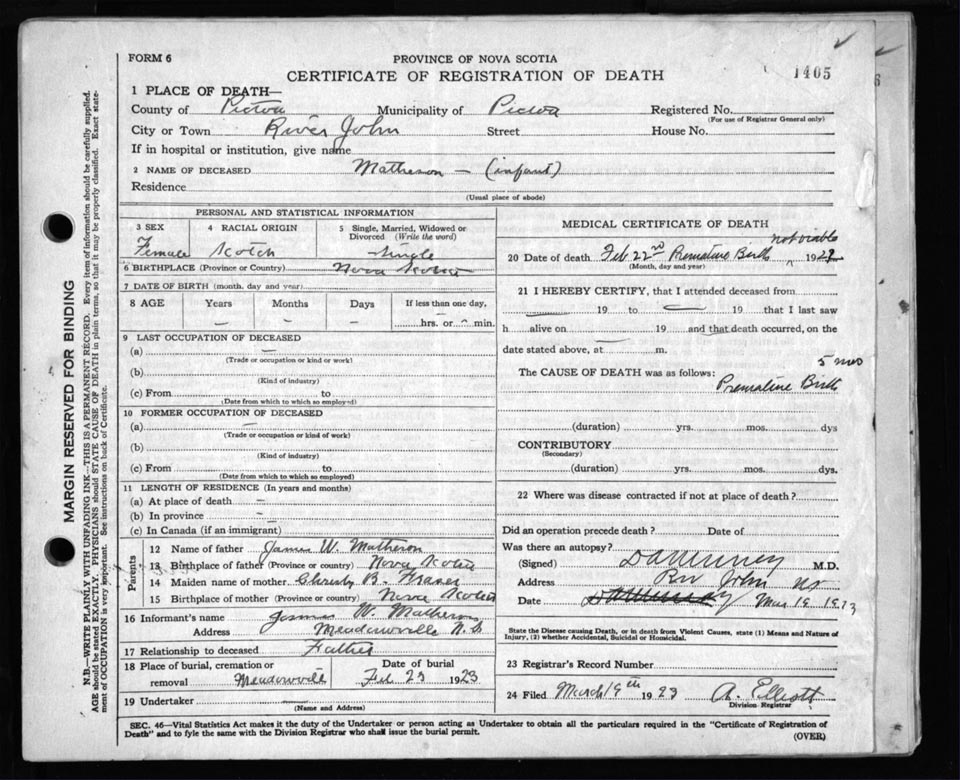 FORM 6
PROVINCE OF NOVA SCOTIA
CERTIFICATE OF REGISTRATION OF DEATH
1405
6
1 PLACE OF DEATH—
County of Pictou Municipality of Pictou Registered No.
(For use of Registrar General only)
City or Town River John Street House No.
If in hospital or institution, give name
2 NAME OF DECEASED Matheson — (infant)
Residence
(Usual place of abode)
PERSONAL AND STATISTICAL INFORMATION
3 SEX 4 RACIAL ORIGIN 5 Single, Married, Widowed or Divorced (Write the word)
Female Scotch Single
6 BIRTHPLACE (Province or Country) Nova Scotia
7 DATE OF BIRTH (month, day and year)
8 AGE Years Months Days If less than one day,
— – – hrs. or min.
9 LAST OCCUPATION OF DECEASED
(a) —
(Trade or occupation or kind or work)
(b)
(Kind of industry)
(c) From to
(Date from which to which so employed)
10 FORMER OCCUPATION OF DECEASED
(a) —
(Trade or occupation or kind of work)
(b)
(Kind of industry)
(c) From to
(Date from which to which so employed)
11 LENGTH OF RESIDENCE (In years and months)
(a) At place of death –
(b) In province –
(c) In Canada (if an immigrant) –
Parents
12 Name of father James W. Matheson
13 Birthplace of father (Province or country) Nova Scotia
14 Maiden name of mother Christy B. Fraser
15 Birthplace of mother (Province or country) Nova Scotia
16 Informant's name James W. Matheson
Address Meadowville N.S.
17 Relationship to deceased Father
18 Place of burial, cremation or removal Meadowville Date of burial Feb 23 1923
19 Undertaker
(Name and Address)
MEDICAL CERTIFICATE OF DEATH
not viable
20 Date of death Feb 22nd Premature Birth ^ 192
(Month, day and year)
21 I HEREBY CERTIFY, that I attended deceased from
19 to 19 that I last saw
h alive on 19 and that death occurred, on the
date stated above, at m.
5 mos
The CAUSE OF DEATH was as follows: Premature Birth
(duration) yrs. mos. dys
CONTRIBUTORY
(Secondary)
(duration) yrs. mos. dys.
22 Where was disease contracted if not at place of death?
Did an operation precede death? Date of
Was there an autopsy?
(Signed) M.D.
Address Riv John NS
Date Mar 19 1923
State the Disease causing Death, or in death from Violent Causes, state (1) Means and Nature of Injury, (2) whether Accidental, Suicidal or Homicidal.
23 Registrar's Record Number
24 Filed March 19th 1923 A. Elliott
Division Registrar
SEC. 46—Vital Statistics Act makes it the duty of the Undertaker or person acting as Undertaker to obtain all the particulars required in the "Certificate of Registration of
Death" and to fyle the same with the Division Registrar who shall issue the burial permit.
(OVER)
MARGIN RESERVED FOR BINDING
N.B.—WRITE PLAINLY WITH UNFADING INK—THIS IS A PERMANENT RECORD. Every item of information should be carefully supplied.
AGE should be stated EXACTLY. PHYSICIANS should STATE CAUSE OF DEATH in plain terms, so that it may be properly classified. Exact state-
ment of OCCUPATION is very important. See instructions on back of Certificate.